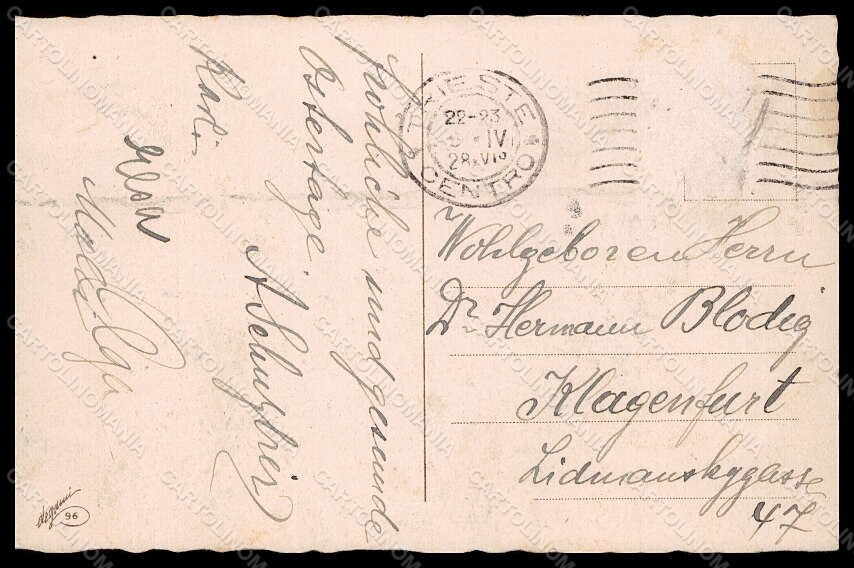 Fröhliche und gesunde
Ostertage.
Karli
Olga
TRIESTE
CENTRO
22-23
IV
28.VI
Wohlgeboren Herrn
Dr. Hermann Blodig
Klagenfurt
Lidmanskygasse
47
degami
96
CARTOLINOMANIA